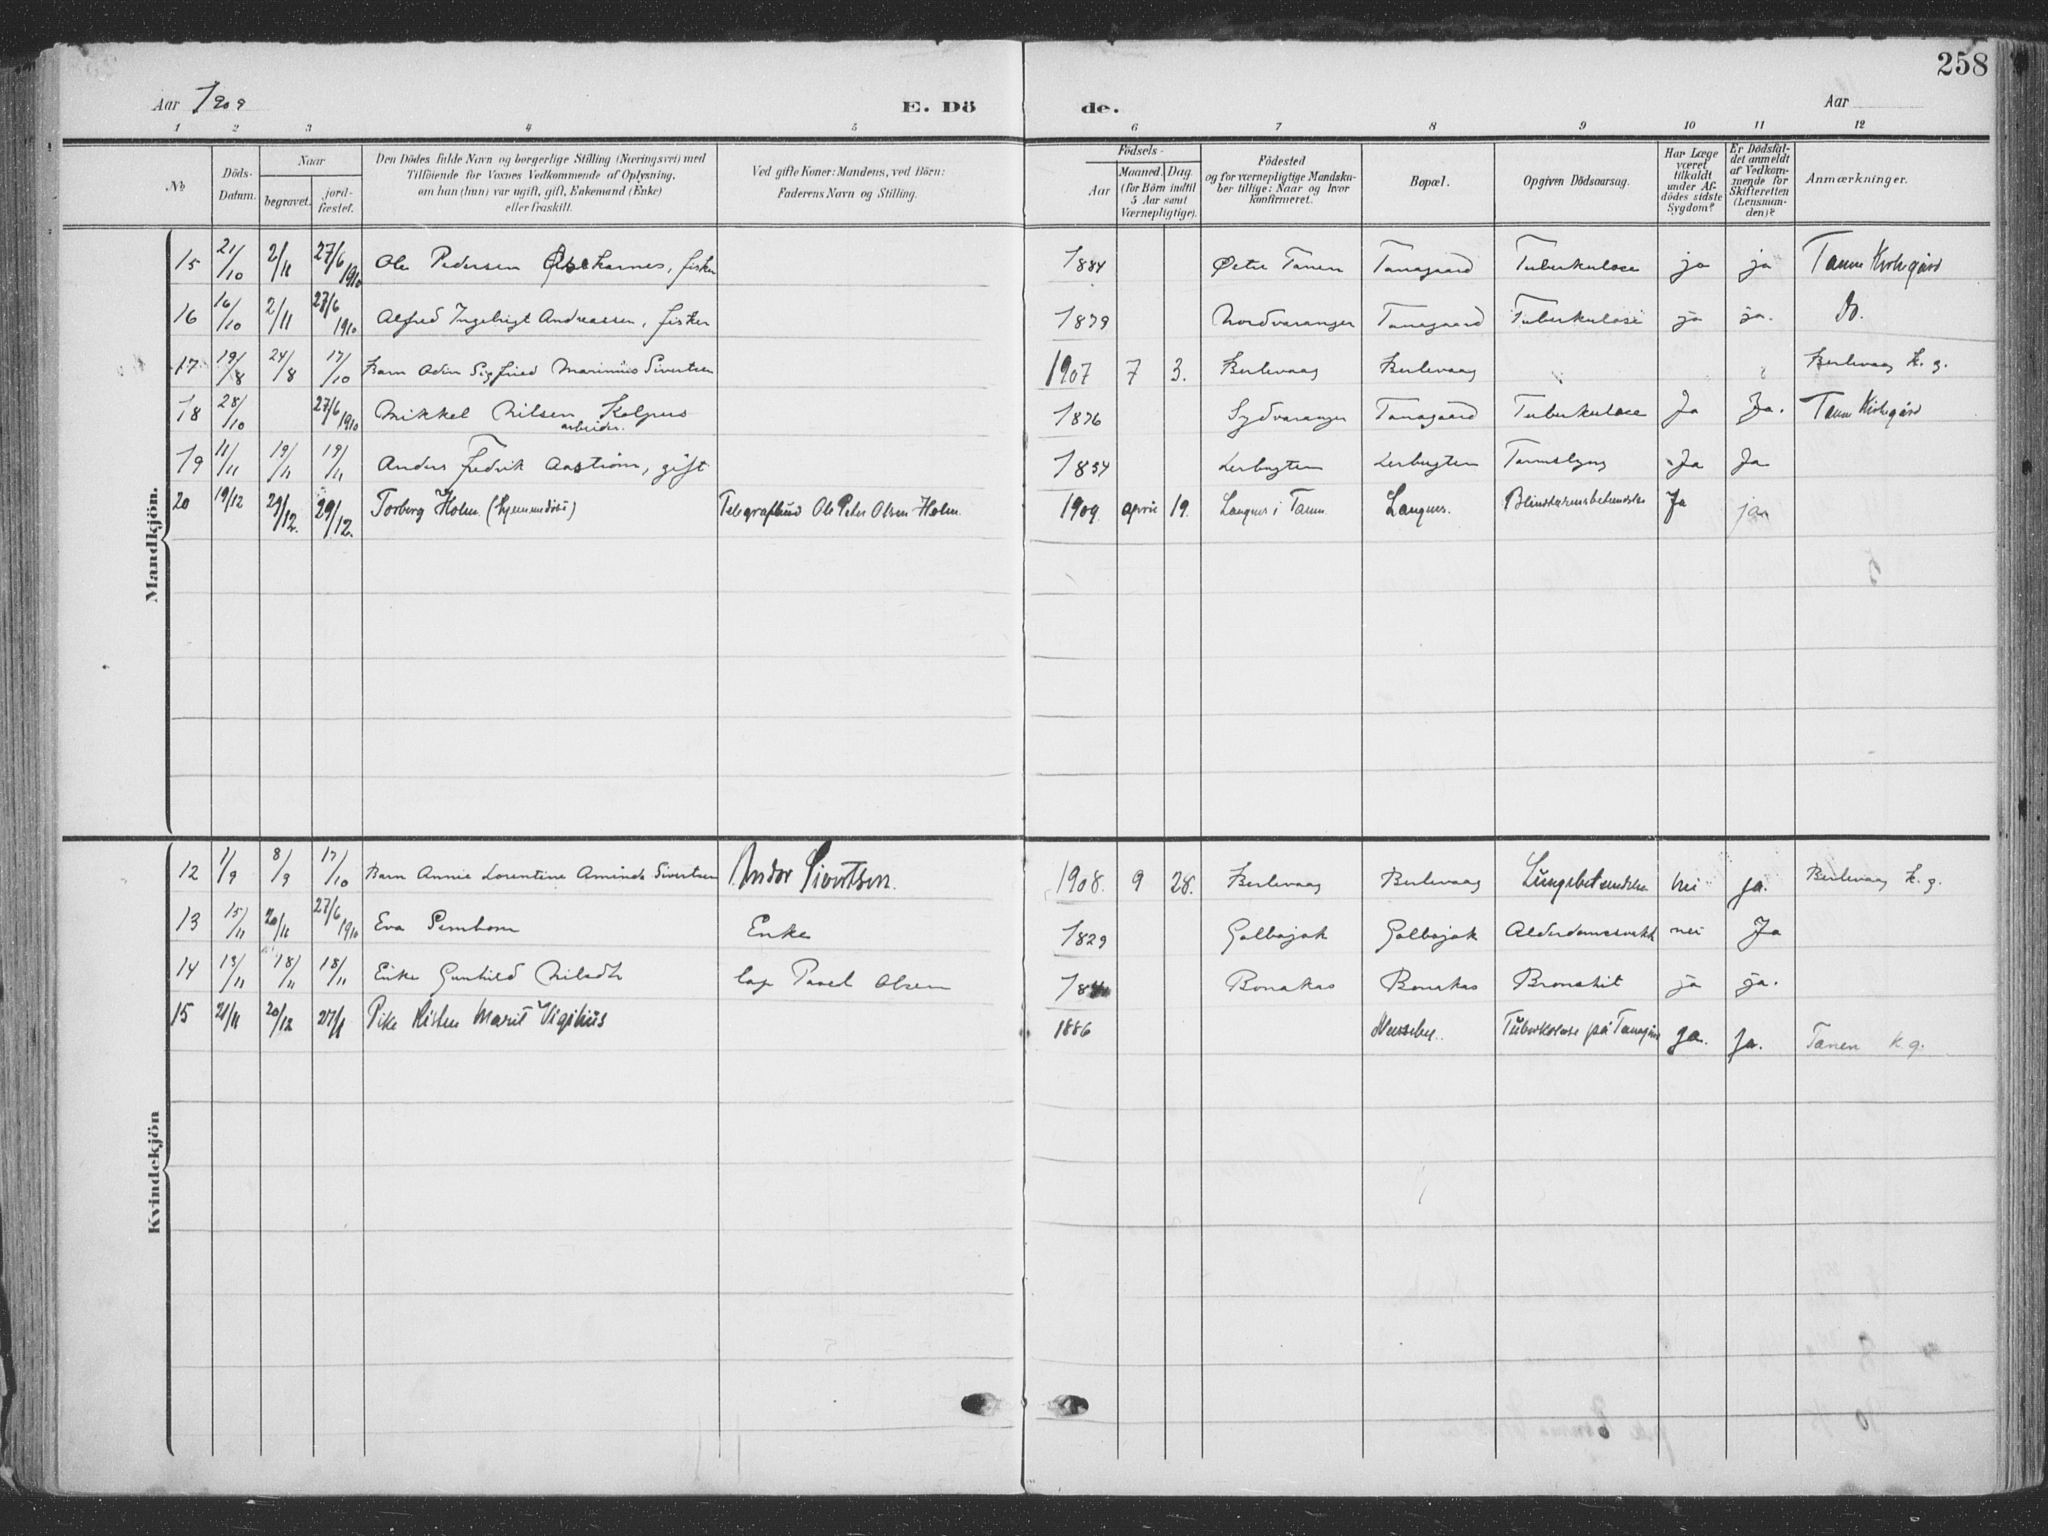 258
Aar 1909 E. Dö de. Aar
1 2 3 4 5 6 7 8 9 10 11 12
No Döds-Datum. Naar begravet. jord-fæstet. Den Dödes fulde Navn og borgerlige Stilling (Næringsvei) med Tilföiende for Voxnes Vedkommende af Oplysning, om han (hun) var ugift, gift, Enkemand (Enke) eller fraskilt. Ved gifte Koner: Mandens, ved Börn: Faderens Navn og Stilling. Födsels- Aar Maaned. Dag. (for Börn indtil 5 Aar samt Værnepligtige). Födested og for værnepligtige Mandskaber tillige: Naar og hvor konfirmeret. Bopæl. Opgiven Dödsaarsag. Har Læge været tilkaldt under Afdödes sidste Sygdom? Er Dödsfaldet anmeldt af Vedkommende for Skifteretten (Lensmanden)? Anmærkninger.
Mandkjön.
15 21/10 2/11 27/6 1910 Ole Pedersen fisker 1884 Østre Tanen Tanagaard Tuberkulose ja ja Tanen Kirkegård
16 16/10 2/11 27/6 1910 Alfred Ingebrigt Andreassen, fisker 1879 Nordvaranger Tanagaard Tuberkulose ja ja. Do.
17 19/8 24/8 17/10 Barn Odin Sigfried Marinius Sivertsen 1907 7 3. Berlevaag Berlevaag Berlevaag k. g.
18 28/10 27/6 1910 Mikkel Nilsen Kolpus arbeider. 1876 Sydvaranger Tanagaard Tuberkulose Ja Ja. Tanen Kirkegård
19 11/11 19/11 19/11 Anders Fredrik Aaström, gift 1854 Lerbugten Lerbugten Ja Ja
20 19/12 29/12. 29/12. Torberg Holm. (hjemmedöbt) Telegrafbud Ole Peter Olsen Holm. 1909. April 19. Langnes i Tanen. Langnes. Blindtarmsbetændelse Ja ja
Kvindekjön
12 1/9 8/9 17/10 Barn Annie Lorentine Aminda Sivertsen Andor Sivertsen. 1908. 9 28. Berlevaag Berlevaag Lungebetændelse nei ja. Berlevaag k. g.
13 15/11 20/11 27/6 1910 Eva Enke 1829 Golbajok Golbajok Alderdomssvækk nei Ja
14 13/11 18/11 18/11 Enke Gunhild Nilsdtr lap Paael Olsen Bonakas Bonakas Bronchit ja ja.
15 21/11 20/12 27/1 Pike Kisten Marit Vigelius 1886 Nesseby. Tuberkolose på Tanagård ja. Ja. Tanen k. g.